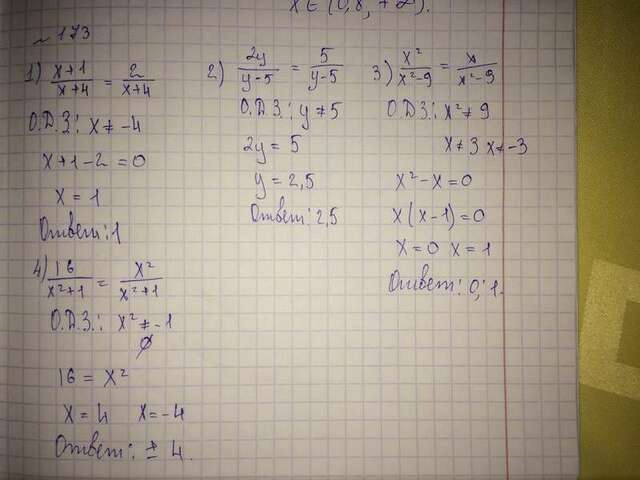 x ∈ (0,8; +∞).
~ 173
1) (x+1)/(x+4) = 2/(x+4)
О.Д.З: x ≠ -4
x+1-2=0
x = 1
Ответ: 1
2) 2y/(y-5) = 5/(y-5)
О.Д.З: y ≠ 5
2y = 5
y = 2,5
Ответ: 2,5
3) x²/(x²-9) = x/(x²-9)
О.Д.З: x² ≠ 9
x ≠ 3 x ≠ -3
x² - x = 0
x(x-1) = 0
x = 0 x = 1
Ответ: 0; 1.
4) 16/(x²+1) = x²/(x²+1)
О.Д.З: x² ≠ -1
∅
16 = x²
x = 4 x = -4
Ответ: ± 4.